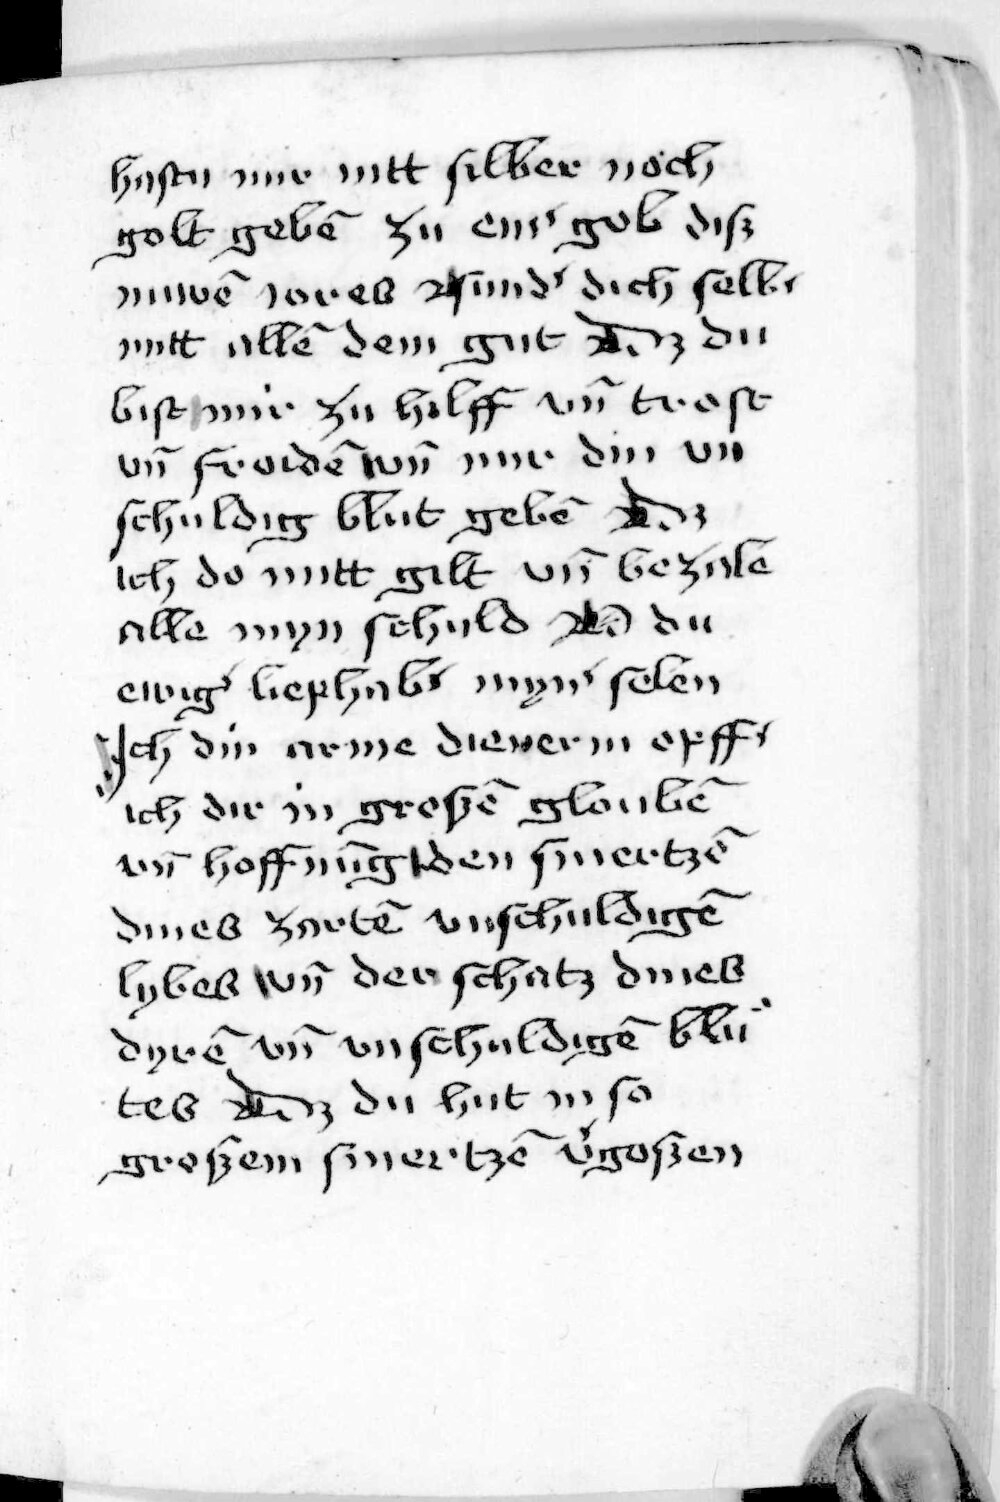 hastu mir nitt silber noch
golt gebē zu einr gob disz
nuwē jores sundr dich selbr
mitt allē dem gut du
bist mir zu hilff vn̄ trost
vn̄ froidē vn̄ mir din vn
schuldig blut gebē
ich do mitt gilt vn̄ bezale
alle myn schuld du
ewigr liephabr mynr selen
Ich din arme dienerin opffr
ich dir in groszē gloubē
vn̄ hoffnūg den smertzē
dines zartē vnschuldigē
lybes vn̄ der schatz dines
dyrē vn̄ vnschuldigē blu
tes du hut in so
groszem smertzē v̓goszen